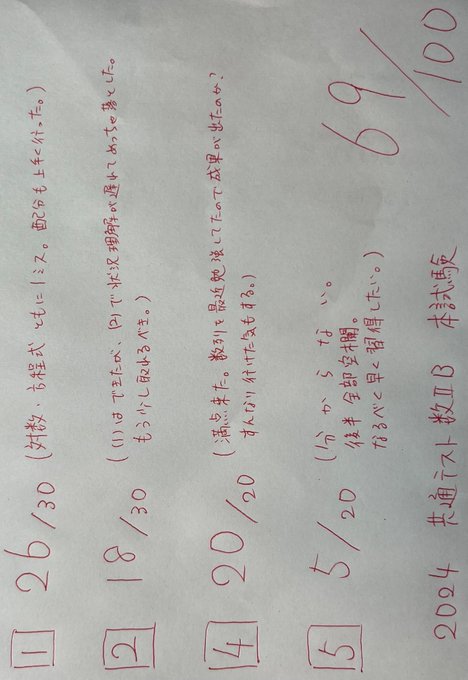 1 26/30 (対数・方程式 ともに1ミス。配分も上手く行った。)
2 18/30 ((1)はできたが、(2)で状況理解が遅れてめっちゃ落とした。
もう少し取れるべき。)
4 20/20 (満点来た。数列を最近勉強してたので成果が出たのか?
すんなり行けた気もする。)
5 5/20 (分からない。
後半全部空欄。
なるべく早く習得したい。)
69/100
2024 共通テスト 数ⅡB 本試験